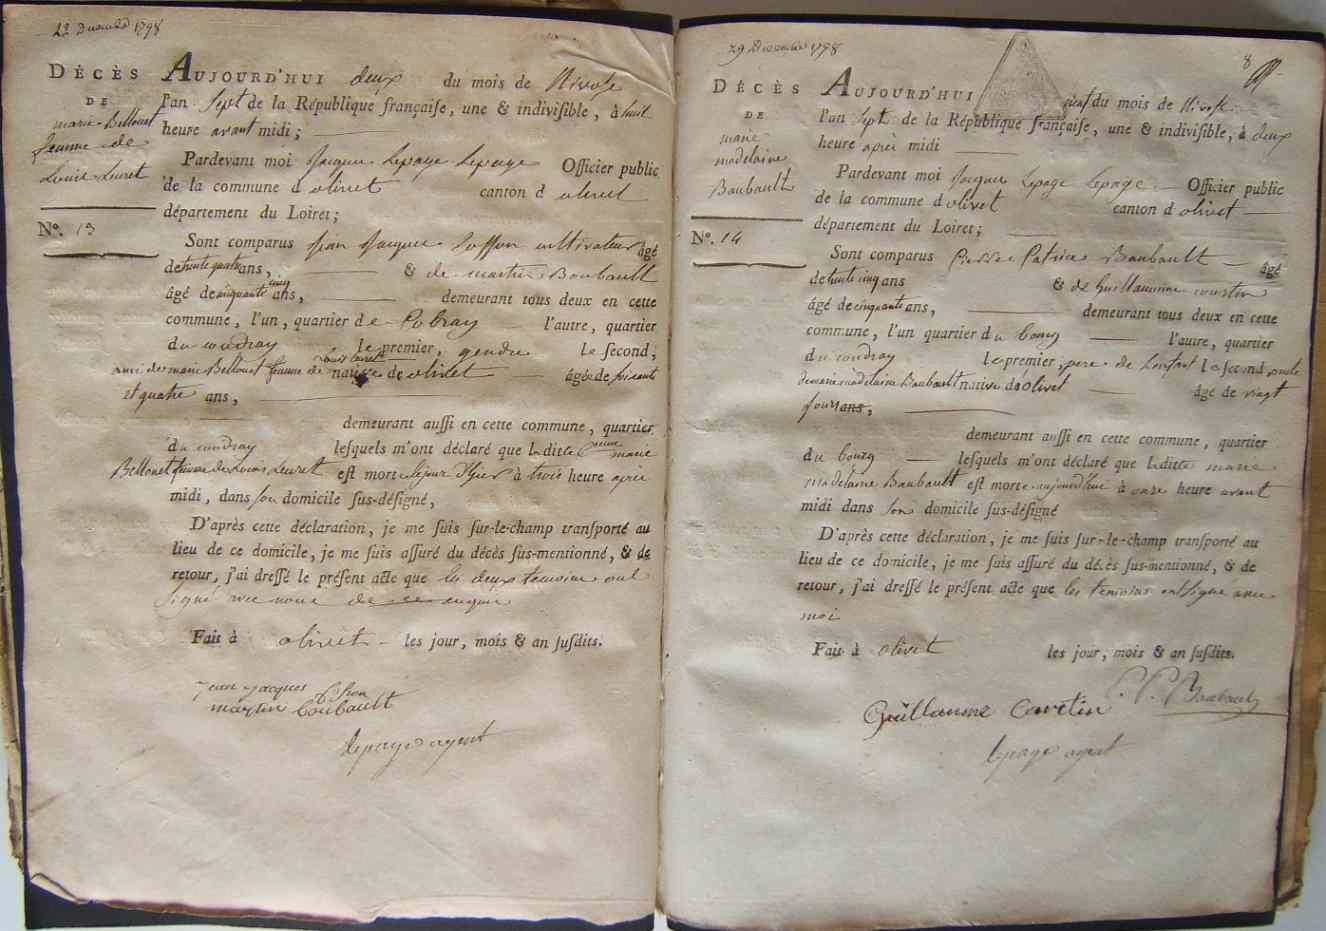 22 Decembre 1798
DÉCÈS
DE
marie Bellouet
femme de
Louis Leuret
N°. 13
AUJOURD'HUI deux du mois de Nivose
l'an Sept de la République françaiſe, une & indiviſible, à huit
heure avant midi;
Pardevant moi Jacques Lepage Lepage Officier public
de la commune d olivet canton d olivet
département du Loiret;
Sont comparus jean Jacques cultivateur âgé
de trente quatre ans, & de martin Boubault
âgé de cinquante ans, demeurant tous deux en cette
commune, l'un, quartier de l'autre, quartier
du coudray le premier, gendre le ſecond,
ami de marie Bellouet femme de Louis Leuret native de olivet âgée de soixante
et quatre ans,
demeurant auſſi en cette commune, quartier
du coudray leſquels m'ont déclaré que laditte marie
Bellouet femme de Louis Leuret eſt morte le jour d'hyer à trois heure après
midi, dans son domicile ſus-déſigné,
D'après cette déclaration, je me ſuis ſur-le-champ tranſporté au
lieu de ce domicile, je me ſuis aſſuré du décès ſus-mentionné, & de
retour, j'ai dreſſé le préſent acte que les deux temoins ont
signé avec nous de ce enquis
Fait à olivet les jour, mois & an ſuſdits.
jean jacques
martin boubault
lepage agent
29 Decembre 1798
8
DÉCÈS
DE
marie
madelaine
Baubault
N°. 14
AUJOURD'HUI du mois de Nivose
l'an Sept de la République françaiſe, une & indiviſible, à deux
heure après midi
Pardevant moi Jacques Lepage Lepage Officier public
de la commune d olivet canton d olivet
département du Loiret;
Sont comparus Pierre Patrice Baubault âgé
de trente cinq ans & de Guillaumme courtin
âgé de cinquante ans, demeurant tous deux en cette
commune, l'un quartier du bourg l'autre, quartier
du coudray le premier, pere de Lenfant le ſecond, oncle
de marie madelaine Baubault native de olivet âgé de vingt
jours ans,
demeurant auſſi en cette commune, quartier
du bourg leſquels m'ont déclaré que laditte marie
madelaine Baubault eſt morte aujourd'huie à onze heure avant
midi dans son domicile ſus-déſigné
D'après cette déclaration, je me ſuis ſur-le-champ tranſporté au
lieu de ce domicile, je me ſuis aſſuré du décès ſus-mentionné, & de
retour, j'ai dreſſé le préſent acte que les temoins ont signé avec
moi
Fait à olivet les jour, mois & an ſuſdits.
P. P. Baubault
Guillaumme Courtin
lepage agent